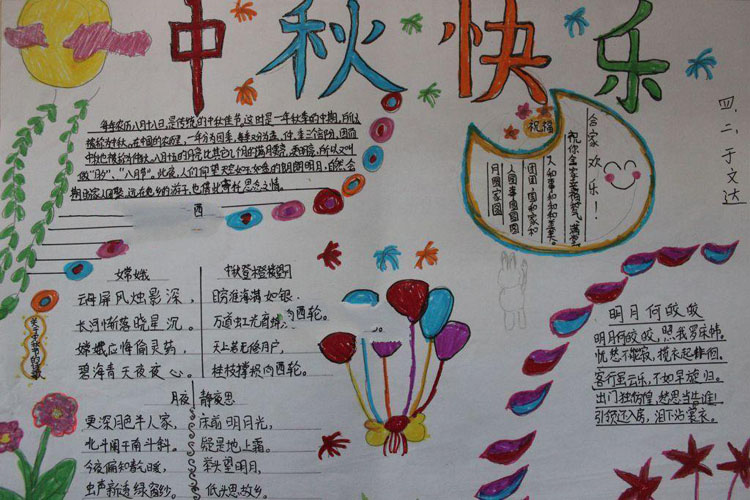 中秋快乐
四、二、于文达
每年农历八月十八日,是传统的中秋佳节。这时是一年秋季的中期,所以
被称为中秋。在中国的农历里,一年分为四季,每季又分为孟、仲、季三个部分,因而
中秋也被称为仲秋。八月十五的月亮比其它几个月的满月更亮,更明亮,所以又叫
做“月夕”,“八月节”。此夜,人们仰望天空如玉如盘的朗朗明月,自然会
期盼家人团聚。远在他乡的游子,也借此寄托思念之情。
西
祝福
合家欢乐!
祝你全家幸福
人和事和和和美美。
团团,国和家和
人圆事圆圆圆
月圆家圆
嫦娥
云母屏风烛影深,
长河渐落晓星沉。
嫦娥应悔偷灵药,
碧海青天夜夜心。
中秋登楼望月
目穷淮海满如银,
万道虹光
天上若无修月户,
桂枝撑损向西轮。
向西轮。
月夜
更深月色半人家,
北斗阑干南斗斜。
今夜偏知春气暖,
虫声新透绿窗纱。
静夜思
床前明月光,
疑是地上霜。
举头望明月,
低头思故乡。
明月何皎皎
明月何皎皎,照我罗床帏。
忧愁不能寐,揽衣起徘徊。
客行虽云乐,不如早旋归。
出门独彷徨,愁思当告谁!
引领还入房,泪下沾裳衣。